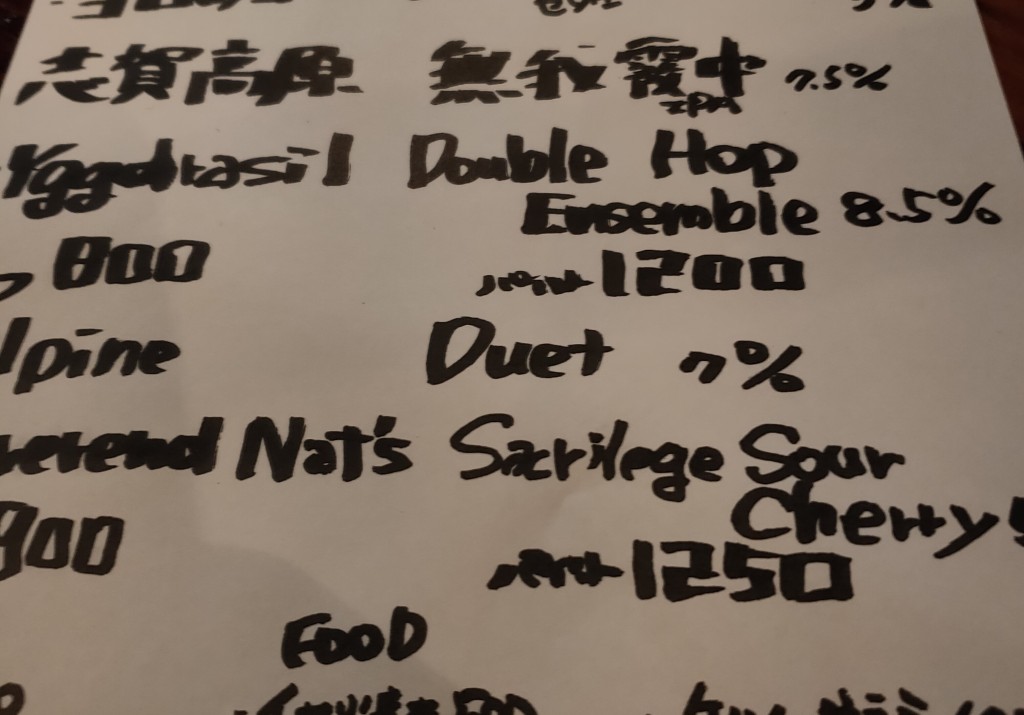 志賀高原 無我霧中 IPA 7.5%
Yggdrasil Double Hop
Ensemble 8.5%
800 パイント 1200
lpine Duet 7%
verend Nat's Sacrilege Sour
Cherry
900 パイント 1250
FOOD